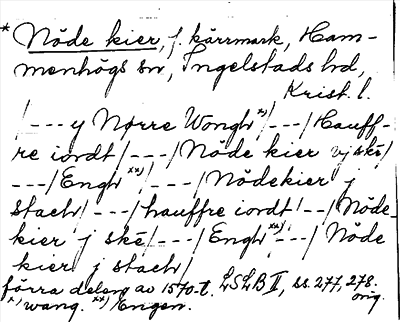 * Nöde kier, f. kärrmark, Ham-
menhögs sn, Ingelstads hd,
Krist. l.
/---y Nørre Wongh x)/---/Hauff-
re iordt/---/Nöde kier vj ské/
---/Engh xx)/---/Nödekier j
stach/---/hauffre iordt/--/Nöde-
kier j ské/---/Engh xx)/---/Nöde
kier j stach/
förra delen av 1570-t. LSLB II, ss. 277, 278.
x) wang. xx) Engen. orig.